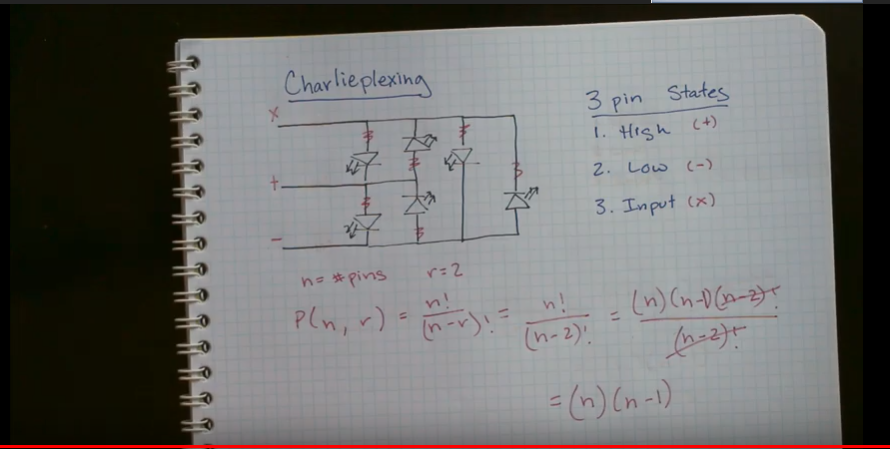 Charlieplexing
x
+
−
3 pin States
1. High (+)
2. Low (−)
3. Input (x)
n = # pins r = 2
P(n, r) = n!/(n-r)! = n!/(n-2)! = (n)(n-1)(n-2)!/(n-2)!
= (n)(n-1)